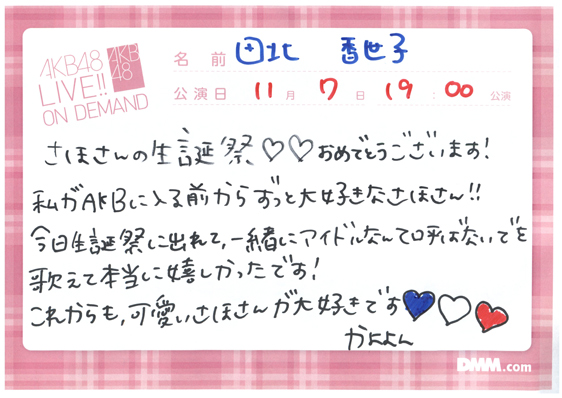 AKB48
LIVE!!
ON DEMAND
AKB
48
名前 田北 香世子
公演日 11月7日 19:00 公演
さほさんの生誕祭♡♡おめでとうございます!
私がAKBに入る前からずっと大好きなさほさん!!
今日生誕祭に出れて,一緒にアイドルなんて呼ばないでを
歌えて本当に嬉しかったです!
これからも,可愛いさほさんが大好きです♥♡♥
かよよん
DMM.com